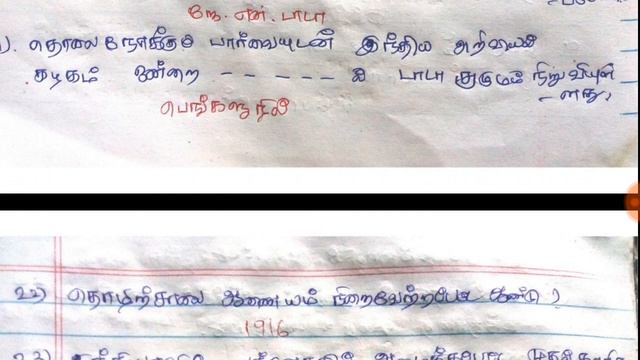 ஜே. என். டாடா
). தொலை நோக்கு பார்வையுடன் இந்திய அறிவியல்
கழகம் ஒன்றை - - - - - ல் டாடா குழுமம் நிறுவியுள்
- ளது,
பெங்களூரில்
22) தொழிற்சாலை ஆணையம் நிறைவேற்றபட்ட ஆண்டு?
1916